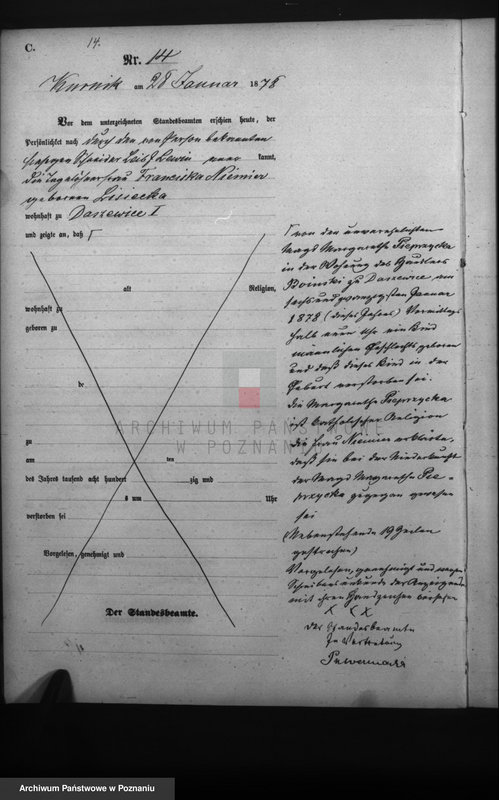 C.
14.
Nr. 14
Kurnik am 28 Januar 1878
Vor dem unterzeichneten Standesbeamten erschien heute, der
Persönlichkeit nach durch den von Person bekannten
Schneider Leib J Lewin kannt,
die Franciska Niemier
geborene Lisiecka
wohnhaft zu Daszewice I
und zeigte an, daß Γ
alt Religion,
wohnhaft zu
geboren zu
de
zu
am ten
des Jahres tausend acht hundert zig und
s um Uhr
verstorben sei
Vorgelesen, genehmigt und
Der Standesbeamte.
Γ von der unverehelichten
Magd Margaretha Pieprzycka
in der Wohnung des Häuslers
zu Daszewice am
sechs und zwanzigsten Januar
1878 (dieses Jahres) Vormittags
halb neun Uhr ein Kind
männlichen Geschlechts geboren
und daß dieses Kind in der
Geburt verstorben sei.
die Margaretha Pieprzycka
ist katholischer Religion
die Frau Niemier erklärte,
daß sie bei der Niederkunft
der Magd Margaretha Pie-
przycka zugegen gewesen
sei
(Nebenstehende 19 Zeilen
gestrichen)
Vorgelesen, genehmigt und wegen
Schreibensunkunde der Anzeigenden
mit ihrem Handzeichen versehen
X X X
der Standesbeamte
In Vertretung
ARCHIWUM PAŃSTWOWE
W POZNANIU
Archiwum Państwowe w Poznaniu